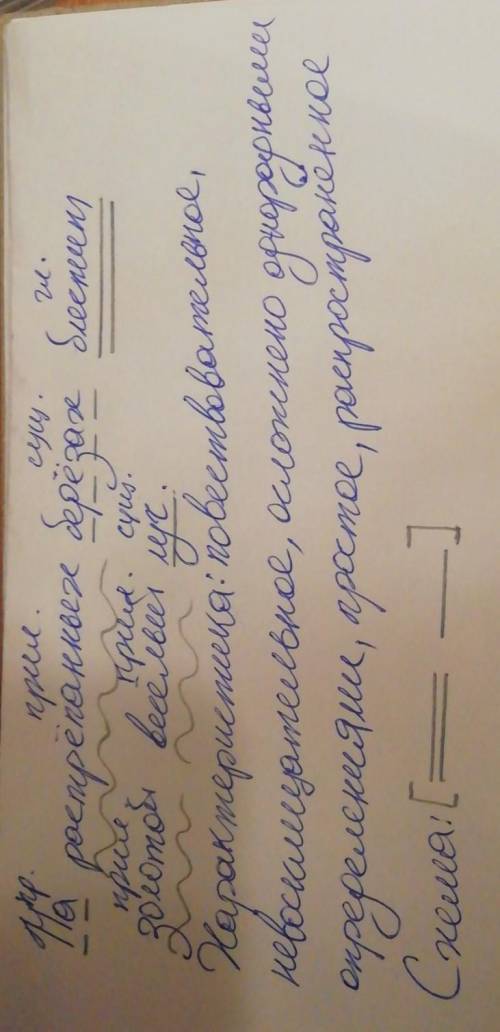 пр. прил. сущ. гл.
На растрёпанных берёзах блестит,
прил прил. сущ.
золотой весёлый луч.
Характеристика: повествовательное,
невосклицательное, осложнено однородными
определениями, простое, распространенное
Схема: [ ]